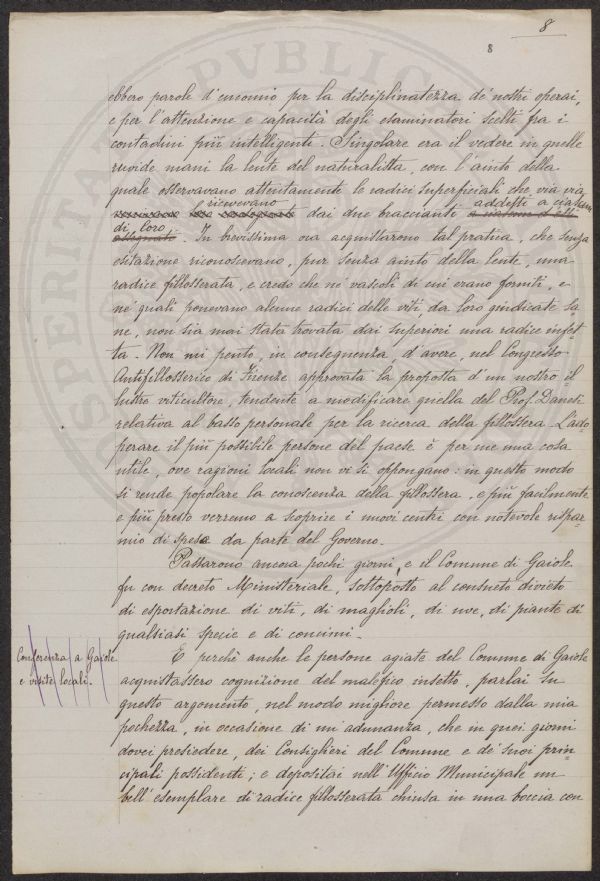 8
8
ebbero parole d'encomio per la disciplinatezza de' nostri operai,
e per l'attenzione e capacità degli esaminatori scelti fra i
contadini più intelligenti. Singolare era il vedere in quelle
ruvide mani la lente del naturalista, con l'aiuto della
quale osservavano attentamente le radici superficiali che, via via
ricevevano addetti a ciascuno
dai due braccianti
di loro
assegnati. In brevissima ora acquistarono tal pratica, che senza
esitazione riconoscevano, pur senza aiuto della lente, una
radice fillosserata, e credo che ne' vascoli di cui erano forniti, e
ne' quali ponevano alcune radici delle viti da loro giudicate sa
ne, non sia mai stata trovata dai superiori una radice infet-
ta. Non mi pento, in conseguenza, d'avere, nel Congresso
Antifillosserico di Firenze approvata la proposta d'un nostro il-
lustre viticultore, tendente a modificare quella del Prof. Danesi
relativa al basso personale per la ricerca della fillossera. L'ado-
perare il più possibile persone del paese è per me una cosa
utile, ove ragioni locali non vi si oppongano: in questo modo
si rende popolare la conoscenza della fillossera, e più facilmente
e più presto verremo a scoprire i nuovi centri con notevole rispar-
mio di spesa da parte del Governo.
Passarono ancora pochi giorni, e il Comune di Gaiole
fu con decreto Ministeriale, sottoposto al consueto divieto
di esportazione di viti, di maglioli, di uve, di piante di
qualsiasi specie e di concimi.
Conferenza a Gaiole
e visite locali.
E perchè anche le persone agiate del Comune di Gaiole
acquistassero cognizione del malefico insetto, parlai su
questo argomento, nel modo migliore permesso dalla mia
pochezza, in occasione di un'adunanza, che in quei giorni
dovei presiedere, dei Consiglieri del Comune e de' suoi prin-
cipali possidenti; e depositai nell'Ufficio Municipale un
bell'esemplare di radice fillosserata chiusa in una boccia con